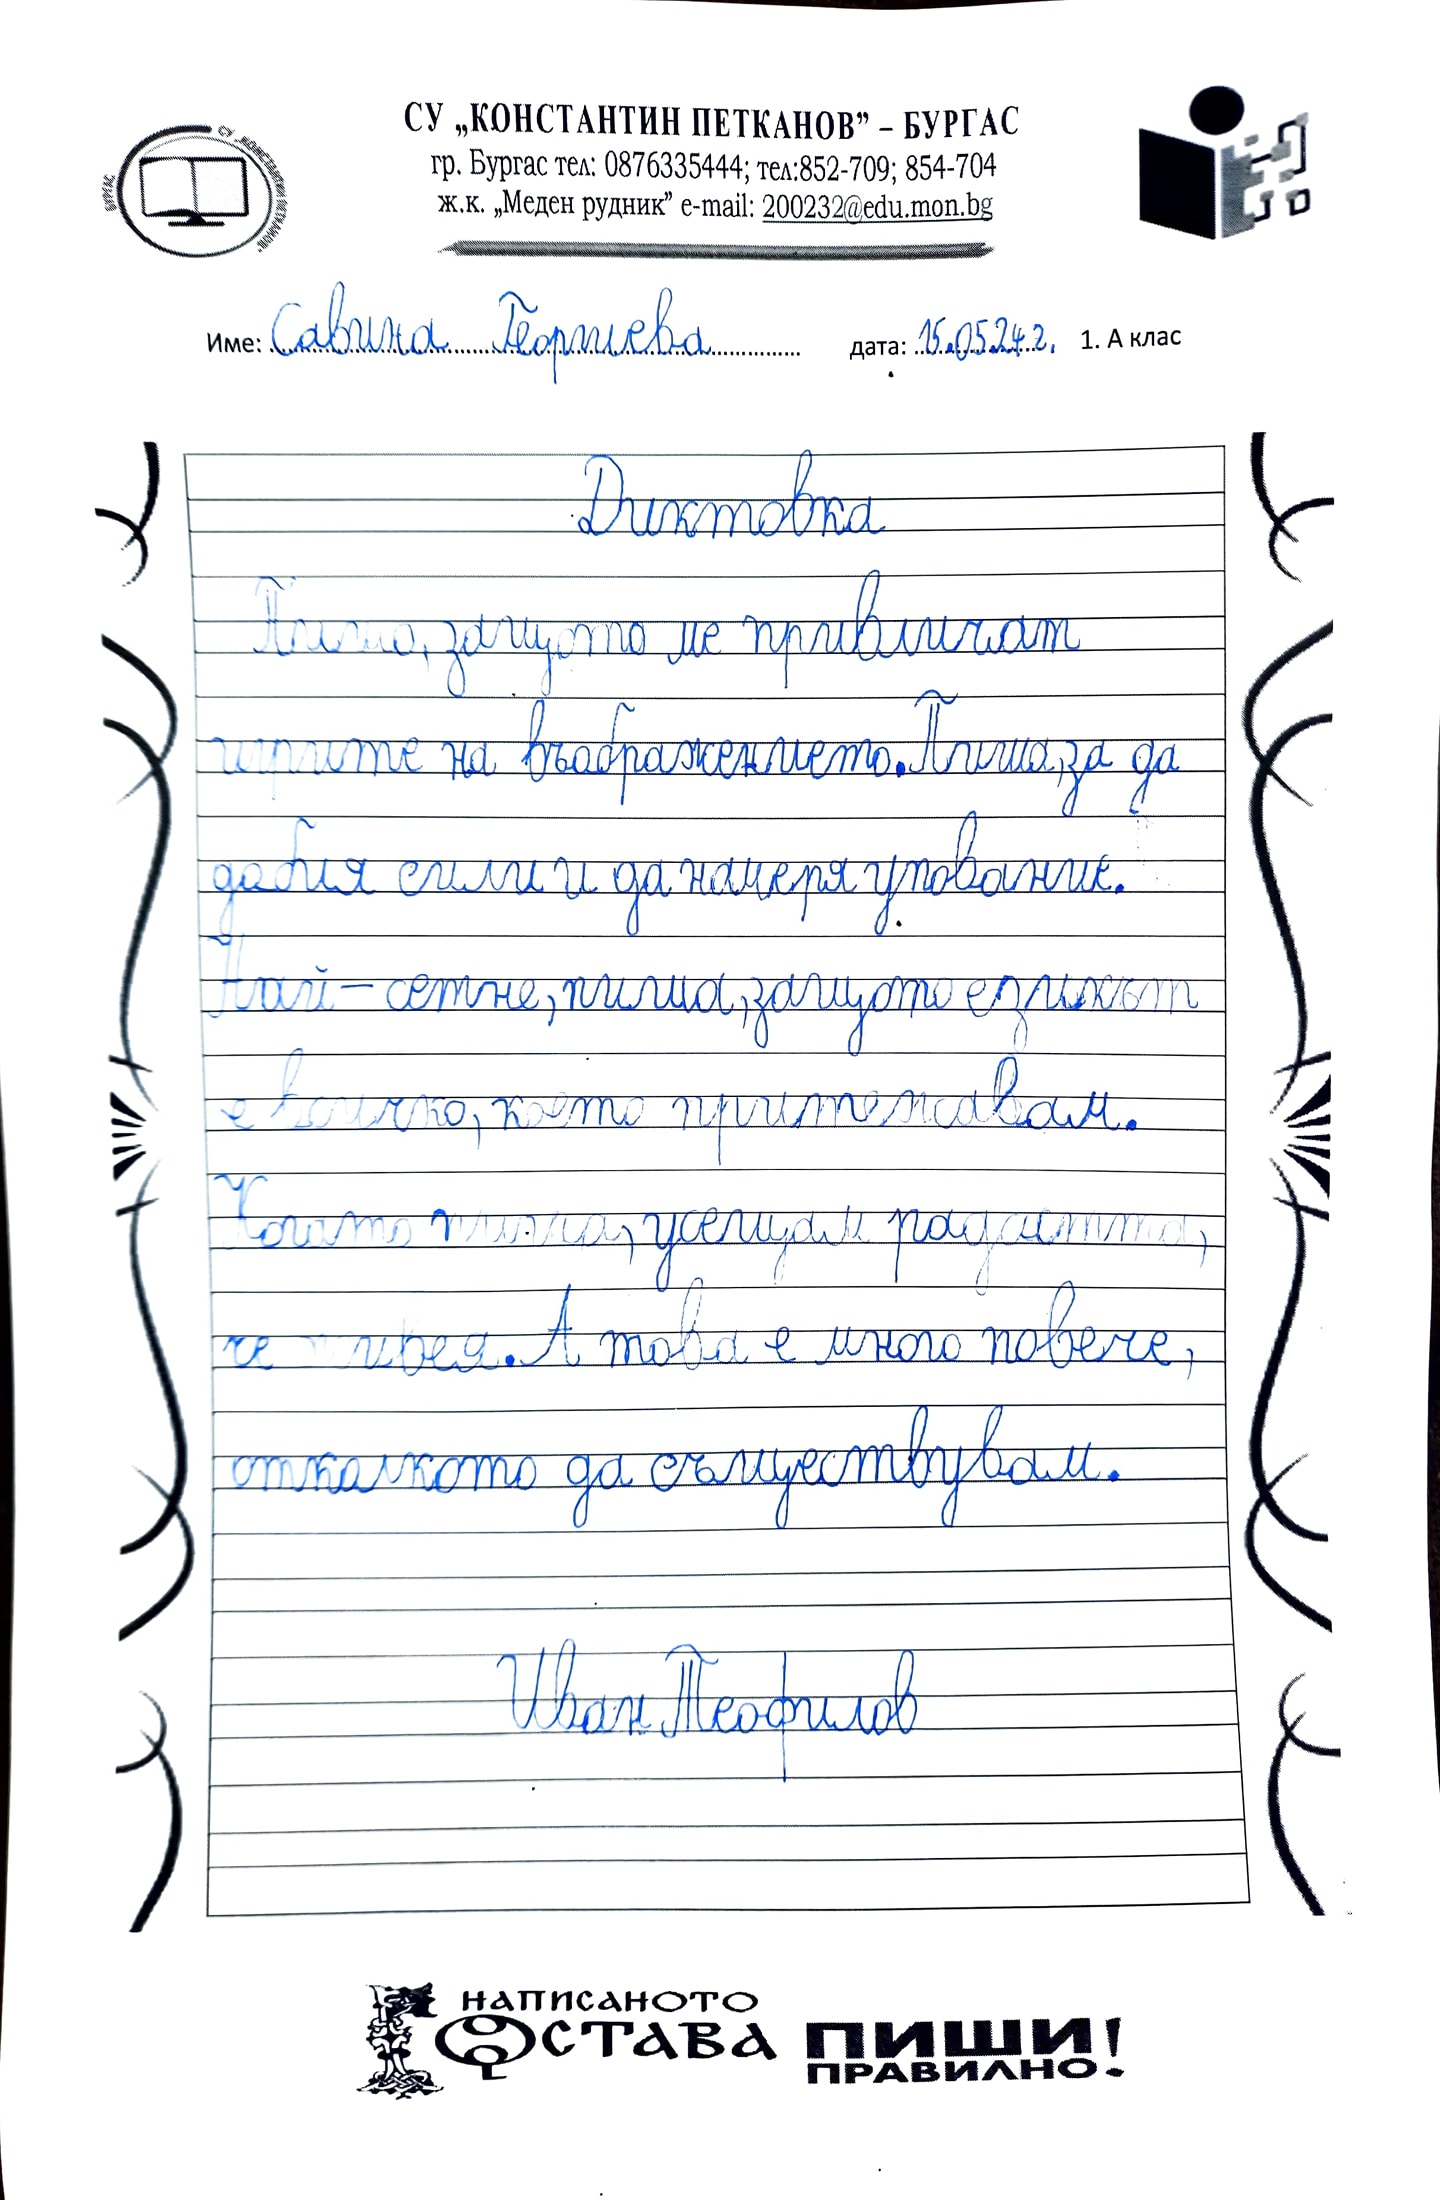 СУ „КОНСТАНТИН ПЕТКАНОВ” – БУРГАС
гр. Бургас тел: 0876335444; тел:852-709; 854-704
ж.к. „Меден рудник” e-mail: 200232@edu.mon.bg
СУ „КОНСТАНТИН ПЕТКАНОВ”
БУРГАС
Име: Савина Георгиева дата: 15.05.24 г. 1. А клас
Диктовка
Пиша, защото ме привличат
игрите на въображението. Пиша, за да
добия сили и да намеря упование.
Най – сетне, пиша, защото езикът
е всичко, което притежавам.
Когато пиша, усещам радостта,
че живея. А това е много повече,
отколкото да съществувам.
Иван Теофилов
НАПИСАНОТО
ОСТАВА ПИШИ!
ПРАВИЛНО!